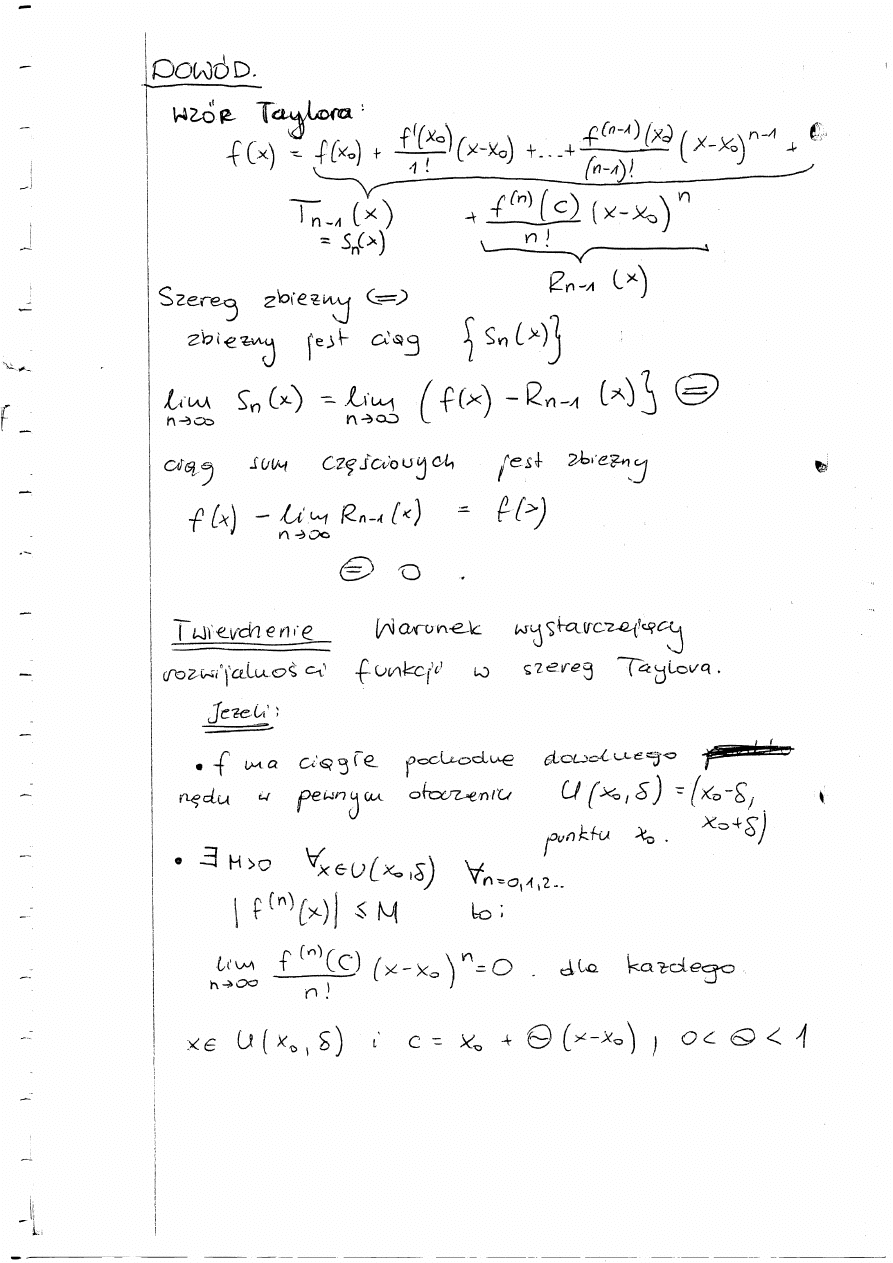 DOWÓD.
WZÓR Taylora:
f(x) = f(x₀) + f'(x₀)/1! (x-x₀) + ... + f⁽ⁿ⁻¹⁾(x₀)/(n-1)! (x-x₀)ⁿ⁻¹ +
Tₙ₋₁(x) + f⁽ⁿ⁾(c)/n! (x-x₀)ⁿ
= Sₙ(x)
Rₙ₋₁(x)
Szereg zbiezny (=)
zbiezny jest ciąg {Sₙ(x)}
lim n→∞ Sₙ(x) = lim n→∞ (f(x) - Rₙ₋₁(x)} ⊜
ciąg sum częściowych jest zbiezny
f(x) - lim n→∞ Rₙ₋₁(x) = f(>)
⊜ 0 .
Twierdzenie Warunek wystarczający
rozwijalności funkcji w szereg Taylora.
Jezeli:
• f ma ciągłe pochodne dowolnego
rzędu w pewnym otoczeniu U(x₀, δ) = (x₀-δ,
x₀+δ)
punktu x₀.
• ∃ M>0 ∀x∈U(x₀,δ) ∀n=0,1,2..
|f⁽ⁿ⁾(x)| ≤ M to:
lim n→∞ f⁽ⁿ⁾(c)/n! (x-x₀)ⁿ = 0 . dla kazdego
x∈ U(x₀, δ) i c = x₀ + Θ(x-x₀), 0 < Θ < 1